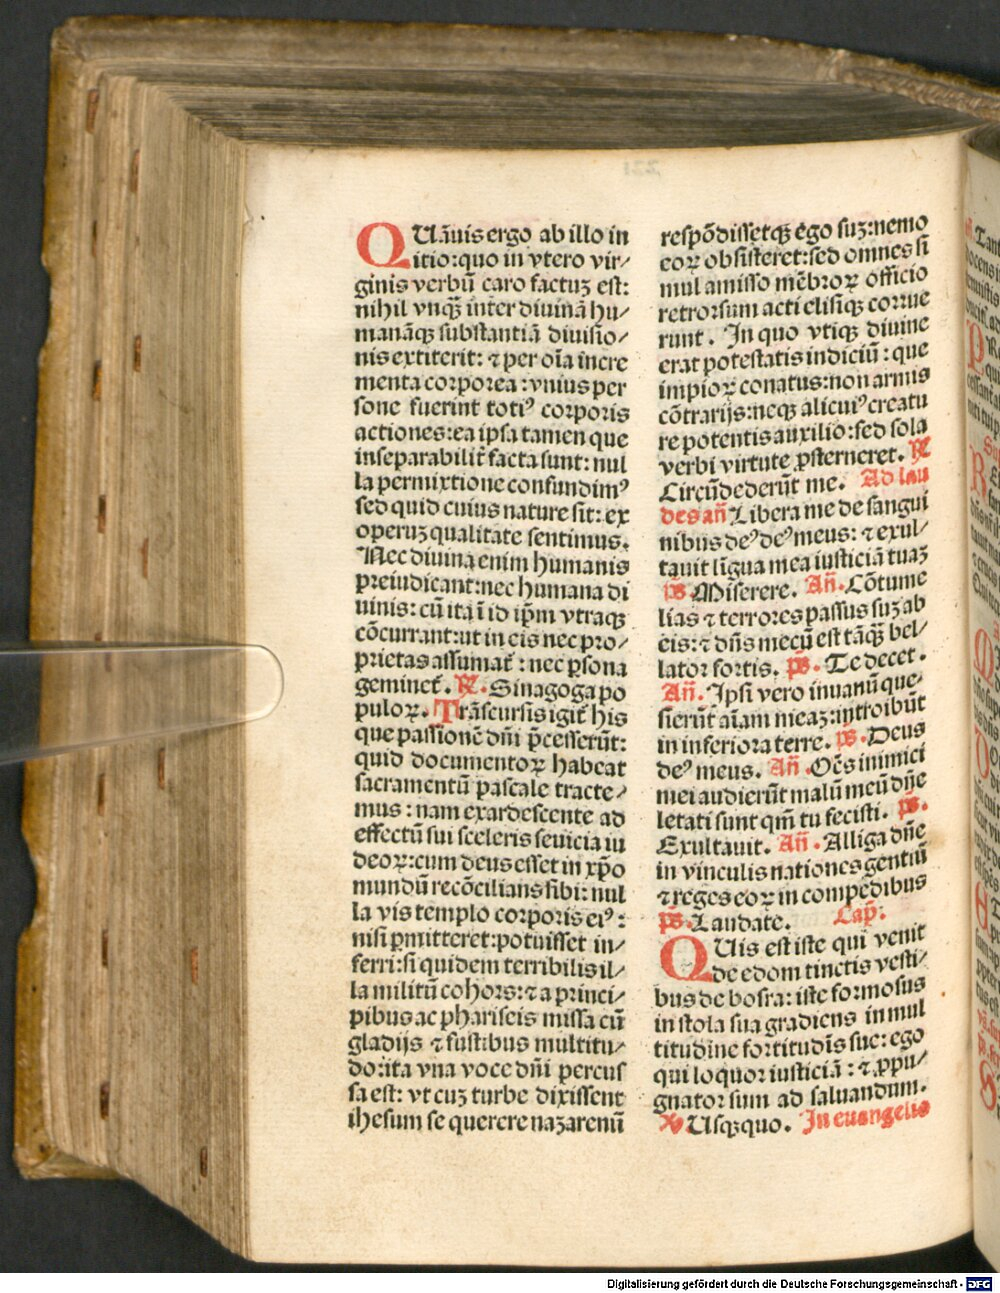 QUāuis ergo ab illo in
itio:quo in vtero vir⸗
ginis verbū caro factuꝫ est:
nihil vnqꝫ̄ inter diuinā hu⸗
manāqꝫ substantiā diuisio⸗
nis extiterit: ⁊ per oīa incre
menta corporea:vnius per
sone fuerint totiꝰ corporis
actiones:ea ipsa tamen que
inseparabilit̄ facta sunt: nul
la permixtione confundimꝰ
sed quid cuius nature sit: ex
operuꝫ qualitate sentimus.
Nec diuina enim humanis
preiudicant:nec humana di
uinis: cū ita ī id ip̄m vtraqꝫ
cōcurrant:ut in eis nec pro⸗
prietas assumat̄ : nec ꝑsona
geminet̄. ℟. Sinagoga po
puloꝝ. Trāscursis igit̄ his
que passionē dn̄i p̄cesserūt:
quid documentoꝝ habeat
sacramentū pascale tracte⸗
mus : nam exardescente ad
effectū sui sceleris seuicia iu
deoꝝ:cum deus esset in xp̄o
mundū recōcilians sibi: nul
la vis templo corporis eiꝰ :
nisi ꝑmitteret:potuisset in⸗
ferri:si quidem terribilis il⸗
la militū cohors:⁊ a princi⸗
pibus ac phariseis missa cū
gladijs ⁊ fustibus multitu⸗
do:ita vna voce dn̄i percus
sa est: vt cuꝫ turbe dixissent
ihesum se querere nazarenū
respōdissetqꝫ ego suꝫ:nemo
eoꝝ obsisteret:sed omnes si
mul amisso mēbroꝝ officio
retrorsum acti elisiqꝫ corrue
runt . In quo vtiqꝫ diuine
erat potestatis indiciū : que
impioꝝ conatus:non armis
cōtrarijs:neqꝫ alicuiꝰ creatu
re potentis auxilio:sed sola
verbi virtute ꝓsterneret. ℟
Circūdederūt me. Ad lau
des an̄ Libera me de sangui
nibus deꝰ deꝰ meus: ⁊ exul⸗
tauit līgua mea iusticiā tuaꝫ
ps̄ Miserere. An̄. Cōtume
lias ⁊ terrores passus suꝫ ab
eis:⁊ dn̄s mecū est tāqꝫ̄ bel⸗
lator fortis. ps̄. Te decet.
An̄. Ipsi vero inuanū que⸗
sierūt aīam meaꝫ:introibūt
in inferiora terre. ps̄. Deus
deꝰ meus. An̄. Oēs inimici
mei audierūt malū meū dn̄e
letati sunt qm̄ tu fecisti. ps̄.
Exultauit. An̄. Alliga dn̄e
in vinculis nationes gentiū
⁊ reges eoꝝ in compedibus
ps̄. Laudate. Cap̄:
QUis est iste qui venit
de edom tinctis vesti⸗
bus de bosra: iste formosus
in stola sua gradiens in mul
titudine fortitudīs sue: ego
qui loquor iusticiā : ⁊ ꝓpu⸗
gnator sum ad saluandum.
℣ Usqꝫquo. In euangelio
Digitalisierung gefördert durch die Deutsche Forschungsgemeinschaft - DFG